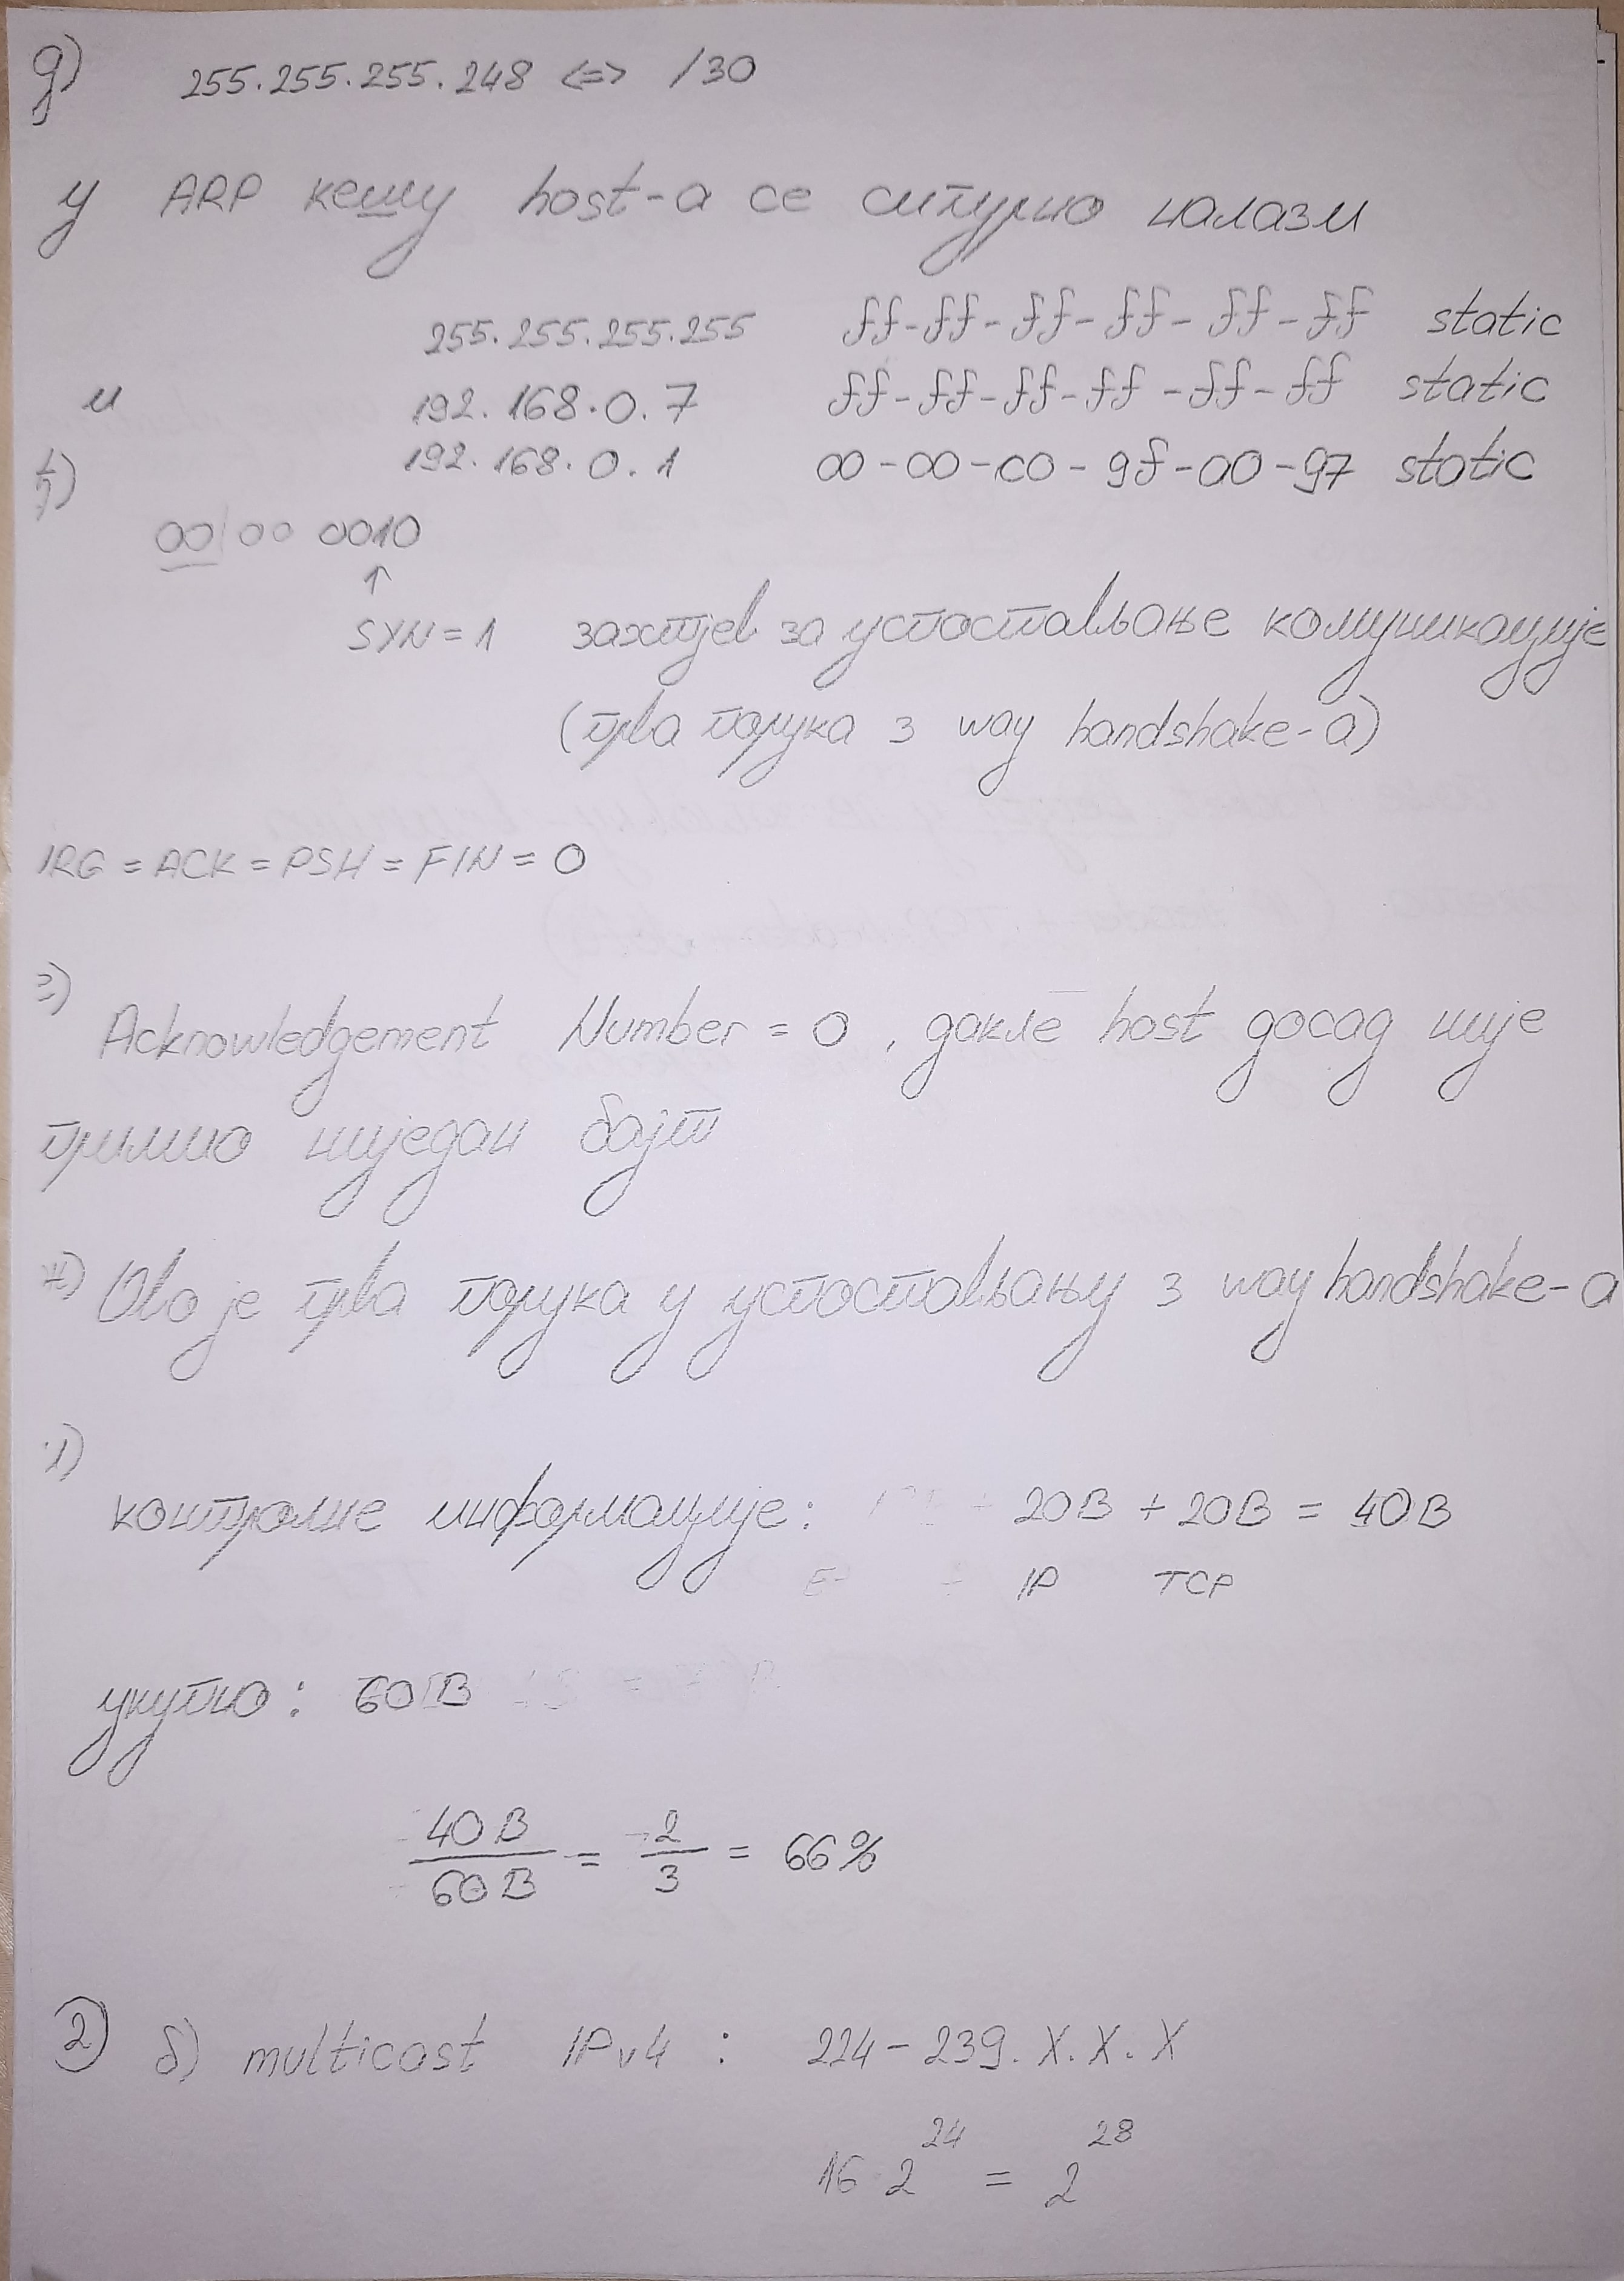 д) 255.255.255.248 <=> /30
у ARP кешу host-а се сигурно налази
255.255.255.255 ff-ff-ff-ff-ff-ff static
и 192.168.0.7 ff-ff-ff-ff-ff-ff static
192.168.0.1 00-00-c0-9f-a0-97 static
ђ)
00 00 0010
↑
SYN = 1 захтјев за успостављање комуникације
(прва порука 3 way handshake-а)
URG = ACK = PSH = FIN = 0
з) Acknowledgement Number = 0, дакле host досад није
примио ниједан бајт
ж) Ово је прва порука у успостављању 3 way handshake-а
и)
контролне информације: 20B + 20B = 40B
IP TCP
укупно: 60B
40B / 60B = 2/3 = 66%
2) б) multicast IPv4 : 224-239.X.X.X
16 2^24 = 2^28